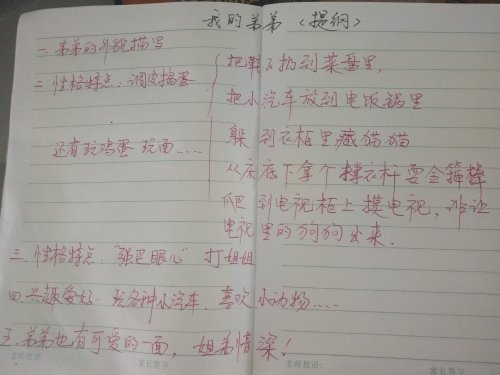 我的弟弟 〈提纲〉
一、弟弟的外貌描写
二、性格特点、调皮捣蛋
把靴子扔到菜盘里,
把小汽车放到电饭锅里
躲到衣柜里藏猫猫
还有玩鸡蛋 玩面……
从床底下拿个撑衣杆耍金箍棒
爬到电视柜上摸电视,难让
电视里的狗狗出来.
三、性格特点、"强巴眼儿" 打姐姐
四、兴趣爱好. 玩各种小汽车、喜欢小动物……
五、弟弟也有可爱的一面, 姐弟情深!
老师批语: 家长签字: 老师批语: 家长签字: